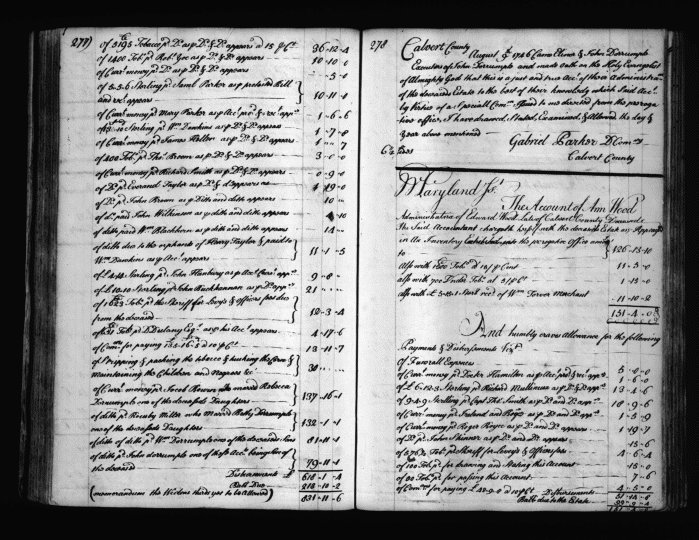 277)
of 5195 Tobacco pd Do as p Do & Do appears a 15 p Ct 36-12-4
of 1400 Tobo pd Robt Gee as p Do & Do appears 10-10-0
of Curr money pd Do as p Do & Do appears -5-0
of 5-5-6 Sterling pd Saml Parker as p protested Bill
and rect appears 10-11-1
of Curr money pd Mary Parker as p Acct pro & rect appr 1-6-6
Sterling pd Wm Dawkins as p Do & Do appears 1-7-8
of Curr money pd James Heller as p Do & Do appears 7
of 400 Tobo pd Thos Broom as p Do & Do appears 3-0-0
of Curr money pd Richard Smith as p Do & Do appears 0-9-0
of Do pd Everard Taylor as p Do & Do appears 4-19-0
of Do pd John Broom as p Ditto and ditto appears 10
of do paid John Wilkinson as p ditto and ditto appears 10
of ditto paid Wm Blackburn as p ditto and ditto appears 14
of ditto due to the orphants of Henry Taylor & paid to
Wm Dawkins as p Acct appears 11-1-5
Sterling pd John Hanbury as p Acct Curr appr 9-8
of £10-10 Sterling pd John Buckhannan as p Do appr 21
Tobo pd the Sheriff for Levys & officers fees due
from the deceased 12-3-4
Tobo pd D. Dulany Esqr as p his Acct appears 4-17-6
of Comn for paying 135-16-3 a 10 p Ct 13-11-7
of Stripping & packing the tobacco & husking the Corn &
Maintaining the Children and Negroes &c 30
of Curr money pd Jacob Bowen who married Rebecca
Dorrumple one of the deceaseds Daughters 137-16-1
of ditto pd Mauby Mills who Married Betty Dorrumple
one of the deceaseds Daughters 132-1-1
of ditto of ditto pd Wm Dorrumple one of the deceaseds Sons 81-11-1
of ditto pd John dorrumple one of these Acct being Son of
the deceased 79-11-1
Disbursements 618-1-4
Ball Due 218-10-2
(memorandum the Widows thirds yet to be allowed) 831-11-6
278
Calvert County
August 1746 Came Elinor & John Dorrumple
Executors of John Dorrumple and made oath on the Holy Evangelist
of Almighty God that this is a just and true Acct of there Administratn
of the deceaseds Estate to the best of their knowledg which said Acct
by Vertue of a Speciall Comn to me directed from the preroga
tive office, I have drawed, Stated, Examined, & Allowed the day &
year above mentioned
Gabriel Parker D Comry
Calvert County
Maryland Ss.
The Account of Ann Wood
Administratrix of Edward Wood Late of Calvert County Deceased
The Said Accountant chargeth herself with the deceased Estate as Appraised
in An Inventory Exhibited into the prerogative office amog
to 126-13-10
Also with 1500 Tobo a 15 p Cent 11-5-0
Also with 700 Tobo at 5 p Ct 1-15-0
Also with £5-15-1 Sterl recd of Wm Torver Merchant 11-10-2
151-4-0
And humbly craves Allowance for the following
Payments & Disbursements Vizt
Of Funerall Expences 5-0-0
of Curr money pd Doctor Hamilton as p Acct pro & rect appr 1-6-0
of £6-12-3 Sterling pd Richard Molineux as p Do & Do appr 13-4-6
Sterling pd Capt Thos Smith as p Do and Do appr 10-9-6
of Curr money pd Ireland and Royce as p Do and Do appr 1-5-9
of Curr money pd Roger Royce as p Do and Do appears 1-19-7
of Do pd John Skinner as p Do and Do appears 15-6
of 576 Tobo pd Sheriff for Levys & Officers fees 4-6-4
of 100 Tobo pd for drawing and stating this Account 15-0
of 50 Tobo for passing this Account 7-6
of Comn for paying £39-9-0 a 10 p Ct 4-5-0
Disbursements
Ball due to the Estate